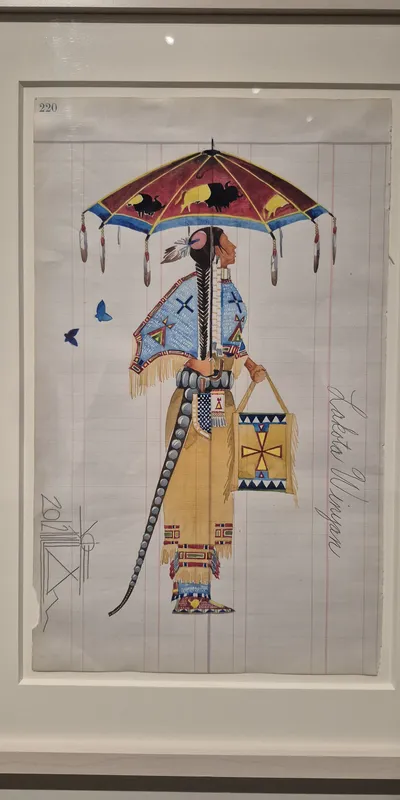 220
Lakota Winyan
2012